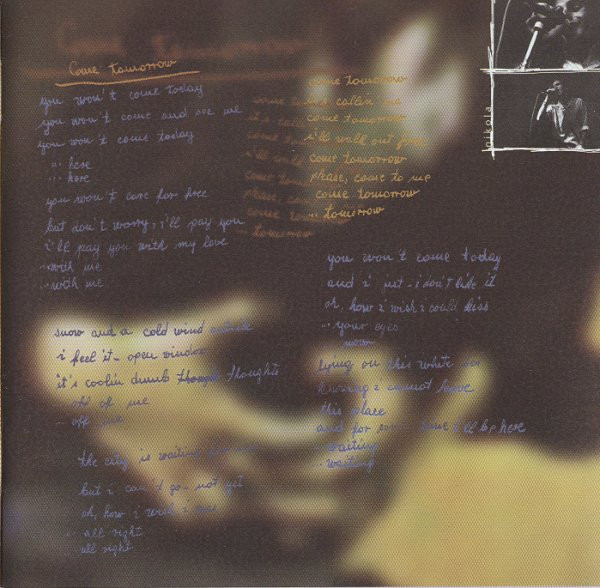 Come tomorrow
you won't come today
you won't come and see me
you won't come today
... here
... here
you won't care for free
but don't worry, i'll pay you
i'll pay you with my love
... with me
... with me
snow and a cold wind outside
i feel it - open window
it's coolin dumb thoughts
off of me
.. off me
the city is waiting
but i can't go - not yet
oh, how i wish i was
.. all right
all right
come tomorrow
come tomorrow
i'll walk out
come tomorrow
please, come to me
come tomorrow
... tomorrow
you won't come today
and i just - i don't like it
oh, how i wish i could kiss
... your eyes
now
lying on this white
knowing i cannot leave
this place
and for i'll be here
.. waiting
.. waiting
nikola